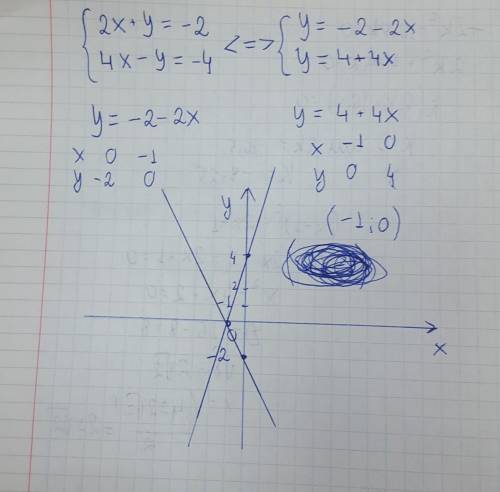 {2x+y=-2 <=> {y=-2-2x
{4x-y=-4 {y=4+4x
y=-2-2x
x 0 -1
y -2 0
y=4+4x
x -1 0
y 0 4
(-1;0)
y
4
2
-1
0
-2
x